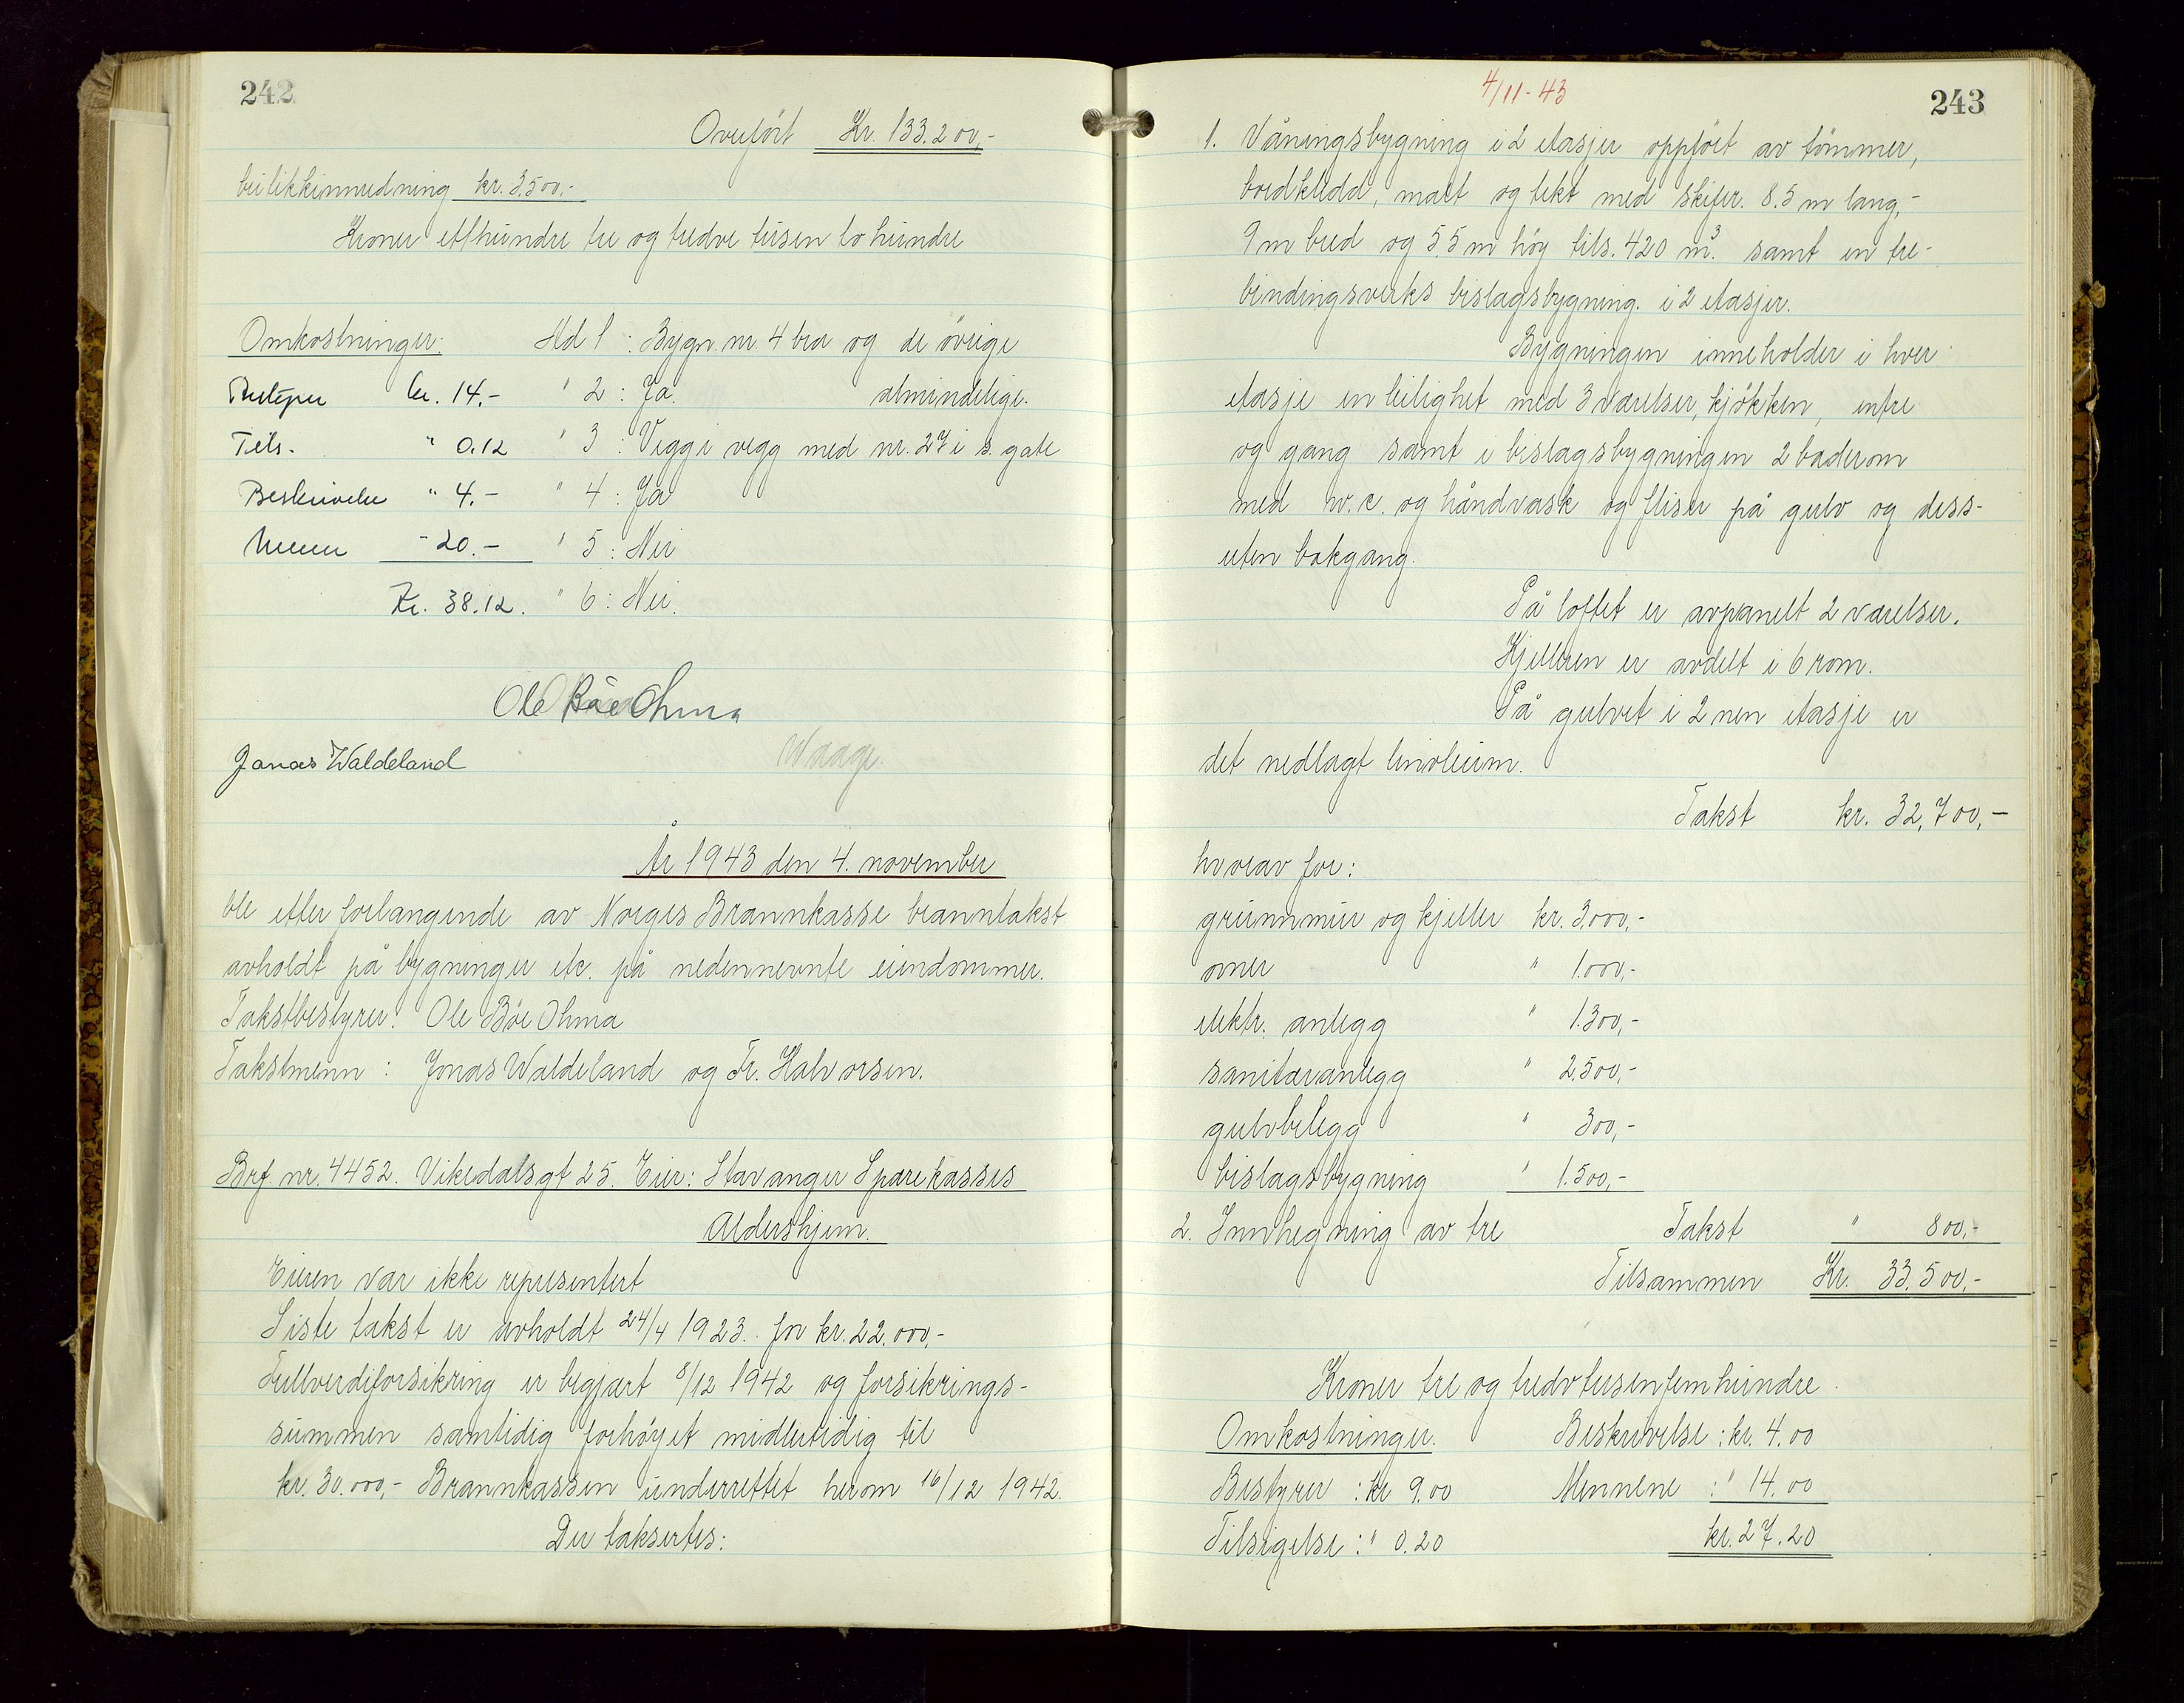 242
Overført Kr. 133.200,-
butikkinnredning kr. 3.500,-
Kroner etthundre tre og tredve tusen to hundre
Omkostninger: Ad 1 : Bygn. nr. 4 bra og de övrige
Bestyrer kr. 14.- " 2 : Ja. almindelige.
Tils. " 0.12 " 3 : Vegg i vegg med nr. 27 i s. gate
Beskrivelse " 4.- " 4 : Ja
Menn " 20.- " 5 : Nei
Kr. 38.12. " 6 : Nei.
Ole Böe Ohma
Jonas Waldeland Waage
År 1943 den 4. november
ble etter forlangende av Norges Brannkasse branntakst
avholdt på bygninger etc. på nedennevnte eiendommer.
Takstbestyrer: Ole Böe Ohma
Takstmenn : Jonas Waldeland og Fr. Halvorsen.
Brf. nr. 4452. Vikedalsgt 25. Eier: Stavanger Sparekasses
Aldershjem.
Eieren var ikke representert
Siste takst er avholdt 24/4 1923. for kr. 22.000,-
Fullverdiforsikring er begjært 8/12 1942 og forsikrings-
summen samtidig forhöyet midlertidig til
kr. 30.000,- Brannkassen underrettet herom 16/12 1942.
Der taksertes:
4/11-43
243
1. Våningsbygning i 2 etasjer oppfört av tömmer,
bordkledd, malt og tekt med skifer. 8.5 m lang,-
9 m bred og 5,5 m höy tils. 420 m³. samt en tre-
bindingsverks bislagsbygning. i 2 etasjer.
Bygningen inneholder i hver
etasje en leilighet med 3 værelser, kjökken, entre
og gang samt i bislagsbygningen 2 baderom
med w.c. og håndvask og fliser på gulv og dess-
uten bakgang.
På loftet er avpanelt 2 værelser.
Kjelleren er avdelt i 6 rom.
På gulvet i 2nen etasje er
det nedlagt linoleum.
Takst kr. 32,700,-
hvorav for:
grunnmur og kjeller kr. 3.000,-
ovner " 1.000,-
elektr. anlegg " 1.300,-
sanitæranlegg " 2.500,-
gulvbelegg " 300,-
bislagsbygning " 1.500,-
2. Innhegning av tre Takst " 800,-
Tilsammen Kr. 33.500,-
Kroner tre og tredvtusenfemhundre.
Omkostninger. Beskrivelse : kr. 4.00
Bestyrer : kr 9.00 Mennene : " 14.00
Tilsigelse : " 0.20 kr. 27.20